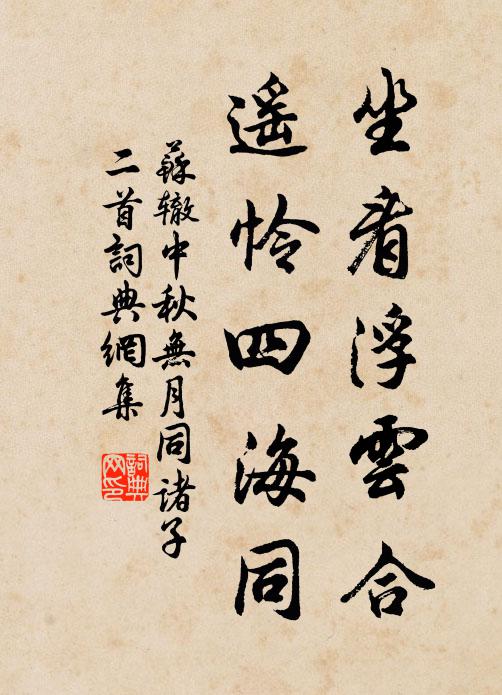 坐看浮雲合
遥怜四海同
蘇辙中秋無月同諸子
二首詞典網集
詞典
网印